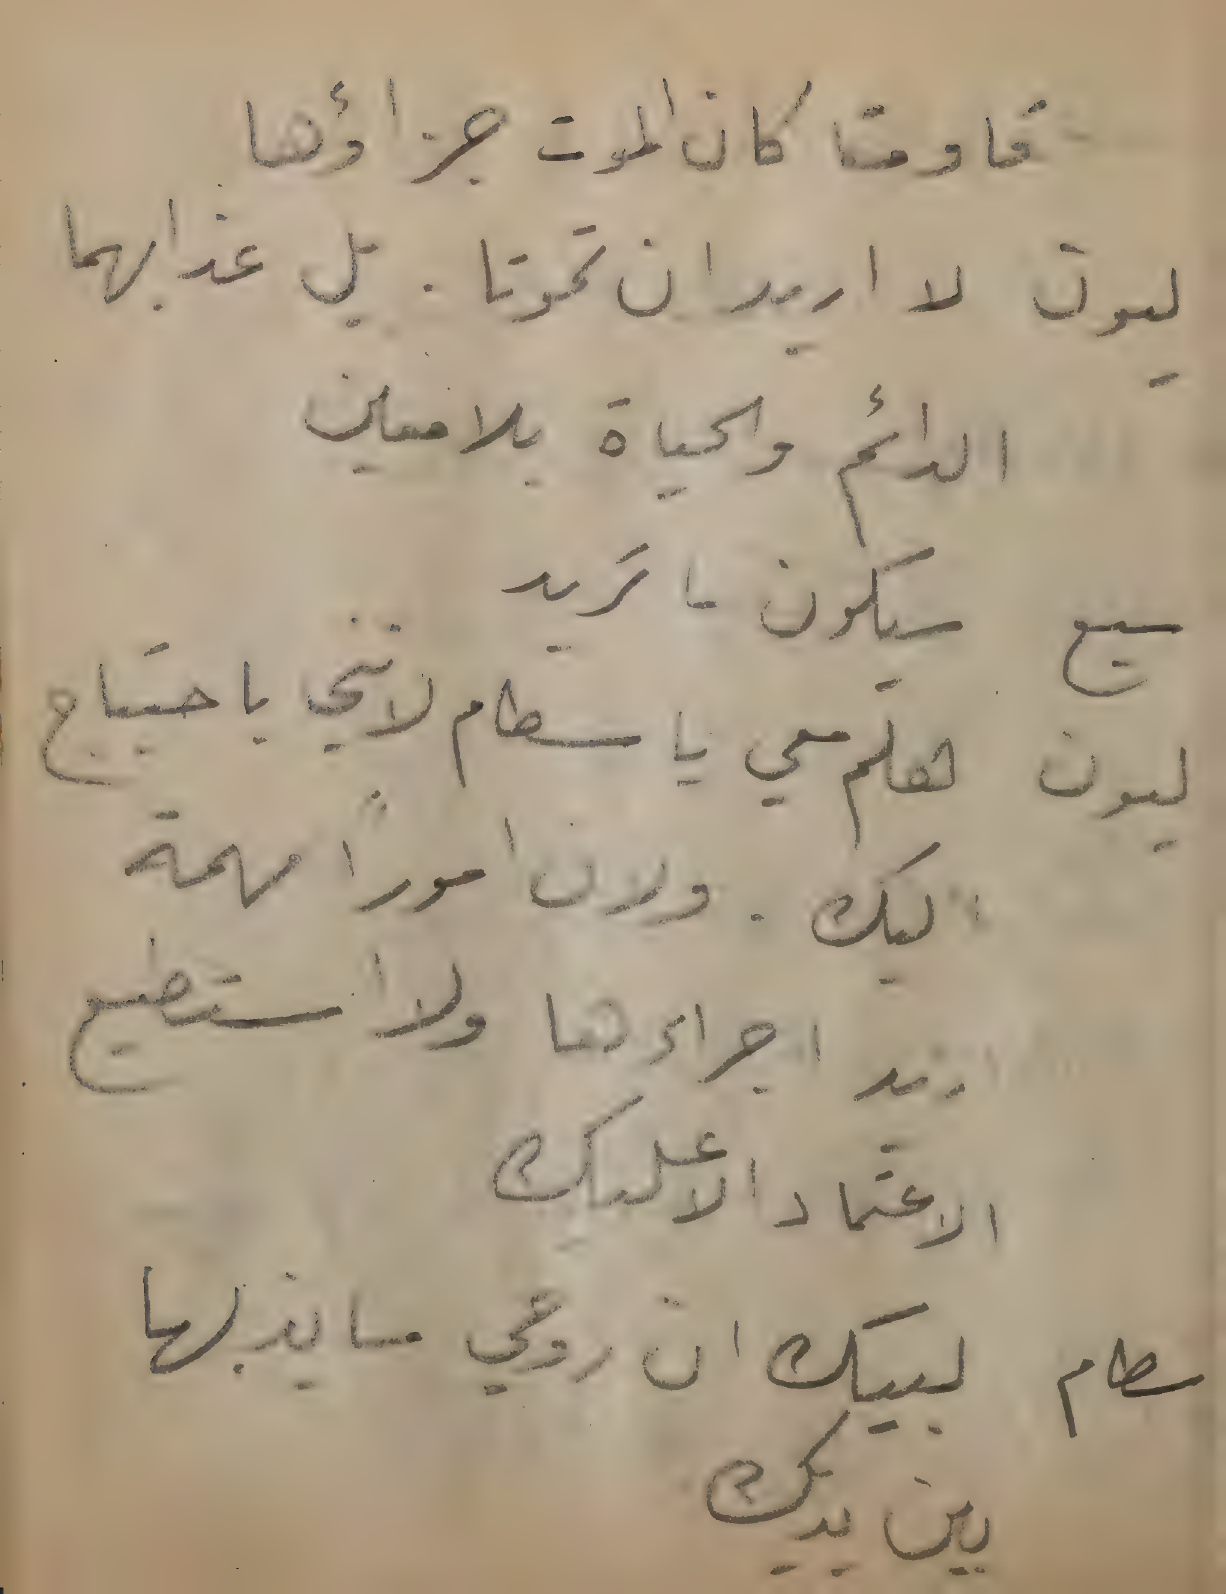 قاومتا كان الموت جزاؤها
ليون لا اريد ان تموتا . بل عذابهما
الدائم والحياة بلا معين
سيع سيكون ما تريد
ليون هلم معي يا سطام لانني باحتياج
اليك . ولان امورًا مهمة
اريد اجراءها ولا استطيع
الاعتماد الا عليك
سطام لبيك ان روحي سابذلها
بين يديك